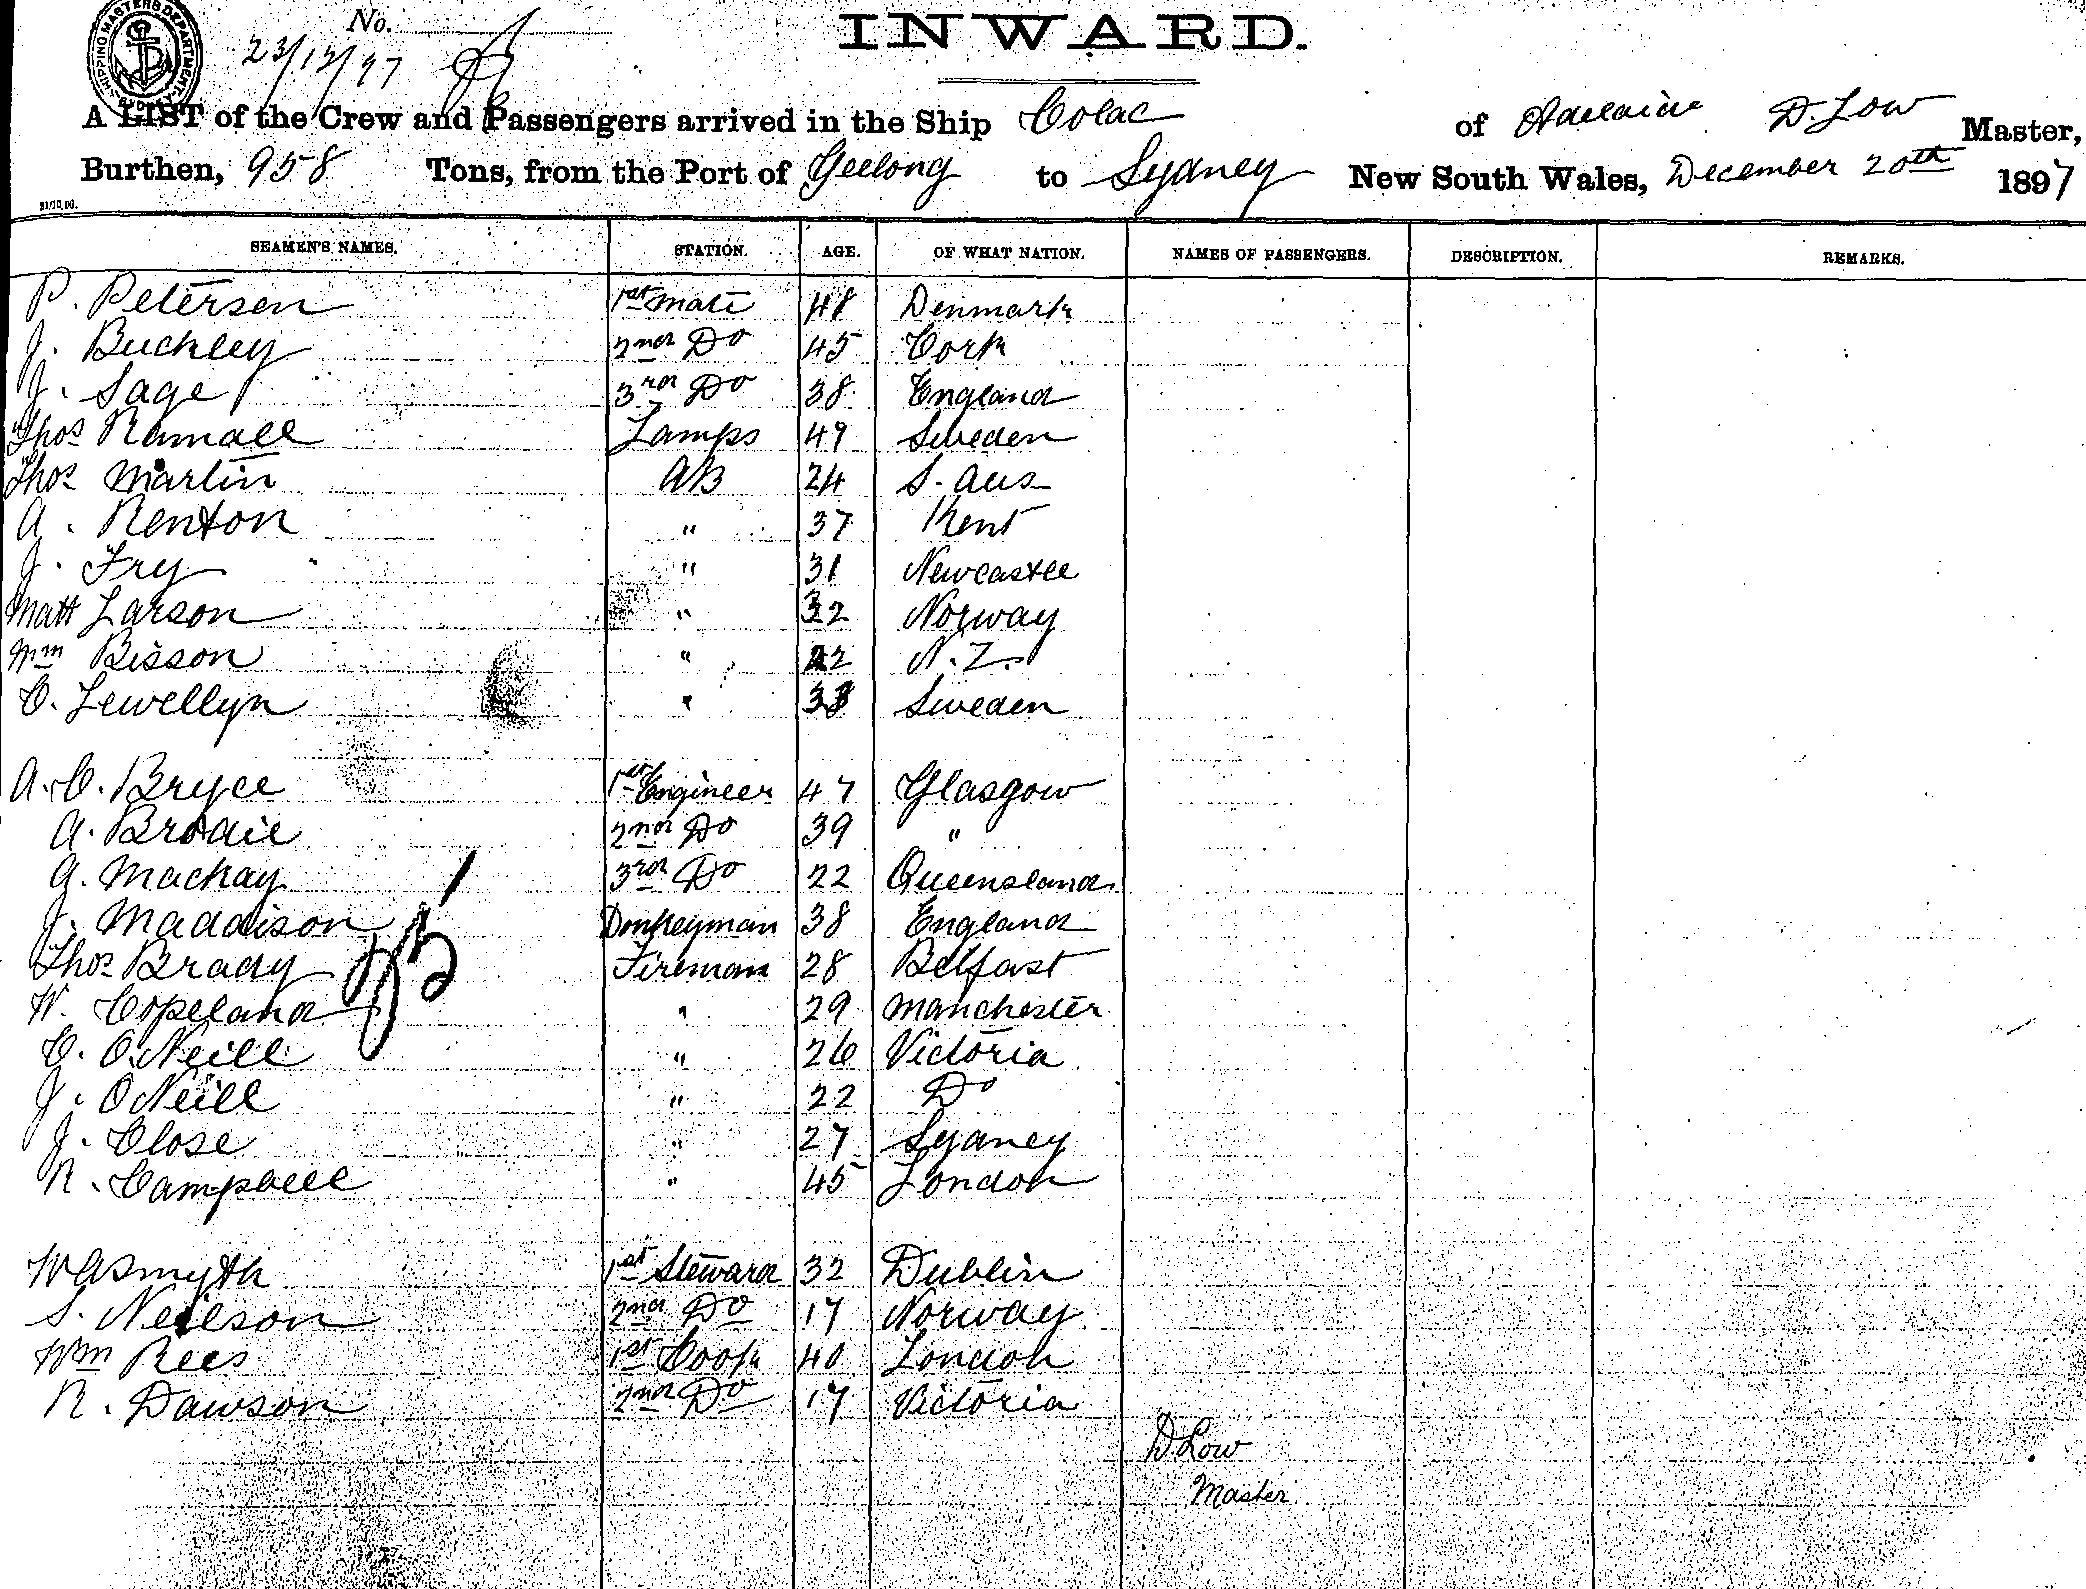 SHIPPING MASTERS DEPARTMENT
No.
23/12/97
INWARD.
A LIST of the Crew and Passengers arrived in the Ship Colac of Adelaide D. Low Master,
Burthen, 958 Tons, from the Port of Geelong to Sydney New South Wales, December 20th 1897
SEAMEN'S NAMES. STATION. AGE. OF WHAT NATION. NAMES OF PASSENGERS. DESCRIPTION. REMARKS.
P. Petersen 1st Mate 48 Denmark
J. Buckley 2nd Do 45 Cork
J. Sage 3rd Do 38 England
Thos Ramall Lamps 49 Sweden
Thos Martin AB 24 S. Aus
A. Renton " 37 Kent
J. Fry " 31 Newcastle
Matt Larson " 32 Norway
Wm Bisson " 22 N.Z.
C. Lewellyn " Sweden
A. C. Bryce 1st Engineer 47 Glasgow
A. Brodie 2nd Do 39 "
G. Mackay 3rd Do 22 Queensland
J. Maddison Donkeyman 38 England
Thos Brady Fireman 28 Belfast
W. Copeland " 29 Manchester
C. O'Neill " 26 Victoria
J. O'Neill " 22 Do
J. Close " 27 Sydney
R. Campbell " 45 London
W A Smyth 1st Steward 32 Dublin
S. Neilson 2nd Do 17 Norway
Wm Rees 1st Cook 40 London
R. Dawson 2nd Do 17 Victoria
D. Low
Master